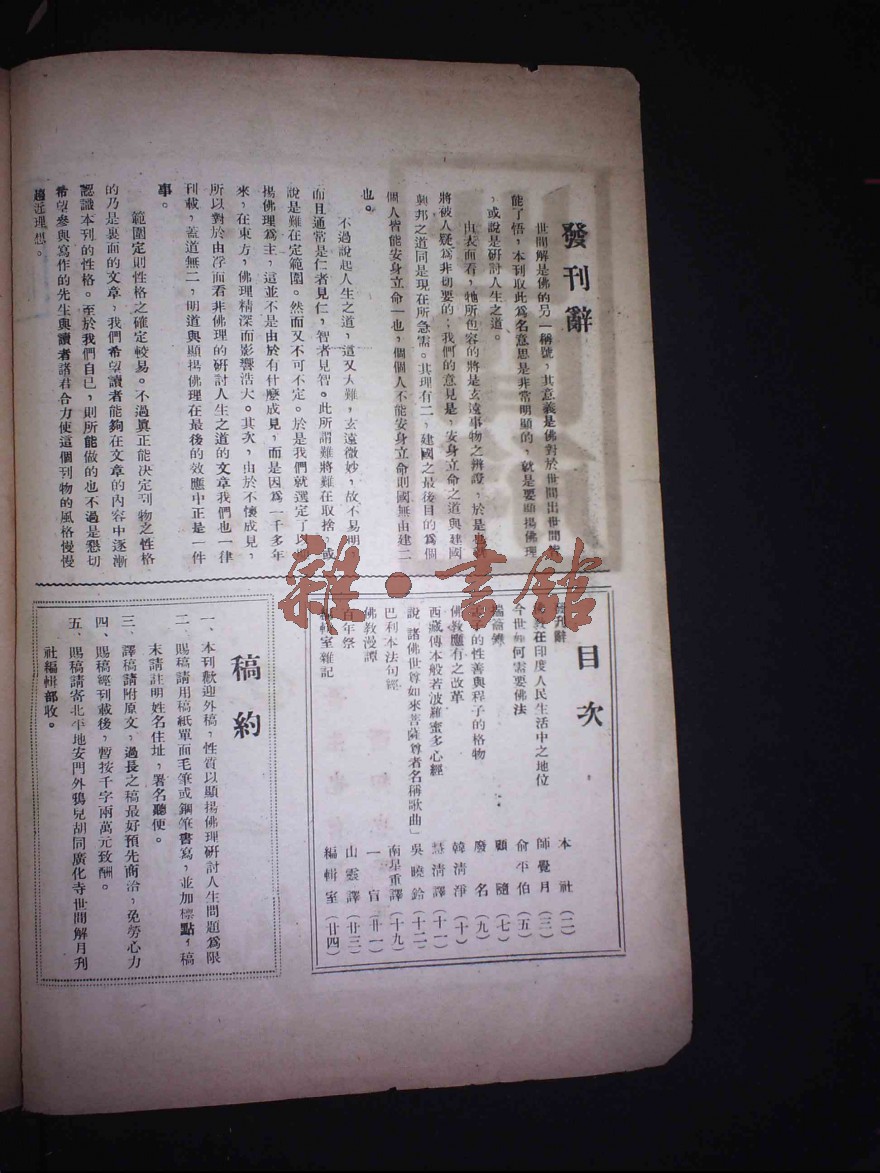 發刊辭
世間解是佛的另一稱號，其意義是佛對於世間出世間皆
能了悟，本刊取此爲名意思是非常明顯的，就是要顯揚佛理
，或說是研討人生之道。
由表面看，牠所包容的將是玄遠事物之辨證，於是也
將被人疑爲非切要的；我們的意見是，安身立命之道與建國
興邦之道同是現在所急需。其理有二，建國之最後目的爲個
個人皆能安身立命一也，個個人不能安身立命則國無由建二
也。
不過說起人生之道，這又大難，玄遠微妙，故不易明
而且通常是仁者見仁，智者見智。此所謂難將難在取捨，或
說是難在定範圍。然而又不可不定。於是我們就選定了以
揚佛理爲主，這並不是由於有什麼成見，而是因爲一千多年
來，在東方，佛理精深而影響浩大。其次，由於不懷成見，
所以對於由浮面看非佛理的研討人生之道的文章我們也一律
刊載，蓋道無二，明道與顯揚佛理在最後的效應中正是一件
事。
範圍定則性格之確定較易。不過眞正能決定刊物之性格
的乃是裏面的文章，我們希望讀者能夠在文章的內容中逐漸
認識本刊的性格。至於我們自己，則所能做的也不過是懇切
希望參與寫作的先生與讀者諸君合力使這個刊物的風格慢慢
趨近理想。
目次
發刊辭 本社（二）
佛教在印度人民生活中之地位 師覺月（三）
今世爲何需要佛法 俞平伯（五）
揣籥錄 顧隨（七）
孟子的性善與程子的格物 廢名（九）
佛教應有之改革 韓清淨（十）
西藏傳本般若波羅蜜多心經 慧清譯（十一）
說「諸佛世尊如來菩薩尊者名稱歌曲」 吳曉鈴（十二）
巴利本法句經 南星重譯（十九）
佛教漫譚 一盲（廿一）
百年祭 山雲譯（廿三）
編輯室雜記 編輯室（廿四）
稿約
一、本刊歡迎外稿，性質以顯揚佛理研討人生問題爲限
二、賜稿請用稿紙單面毛筆或鋼筆書寫，並加標點，稿
末請註明姓名住址，署名聽便。
三、譯稿請附原文，過長之稿最好預先商洽，免勞心力
四、賜稿經刊載後，暫按千字兩萬元致酬。
五、賜稿請寄北平地安門外鴉兒胡同廣化寺世間解月刊
社編輯部收。
雜·書館